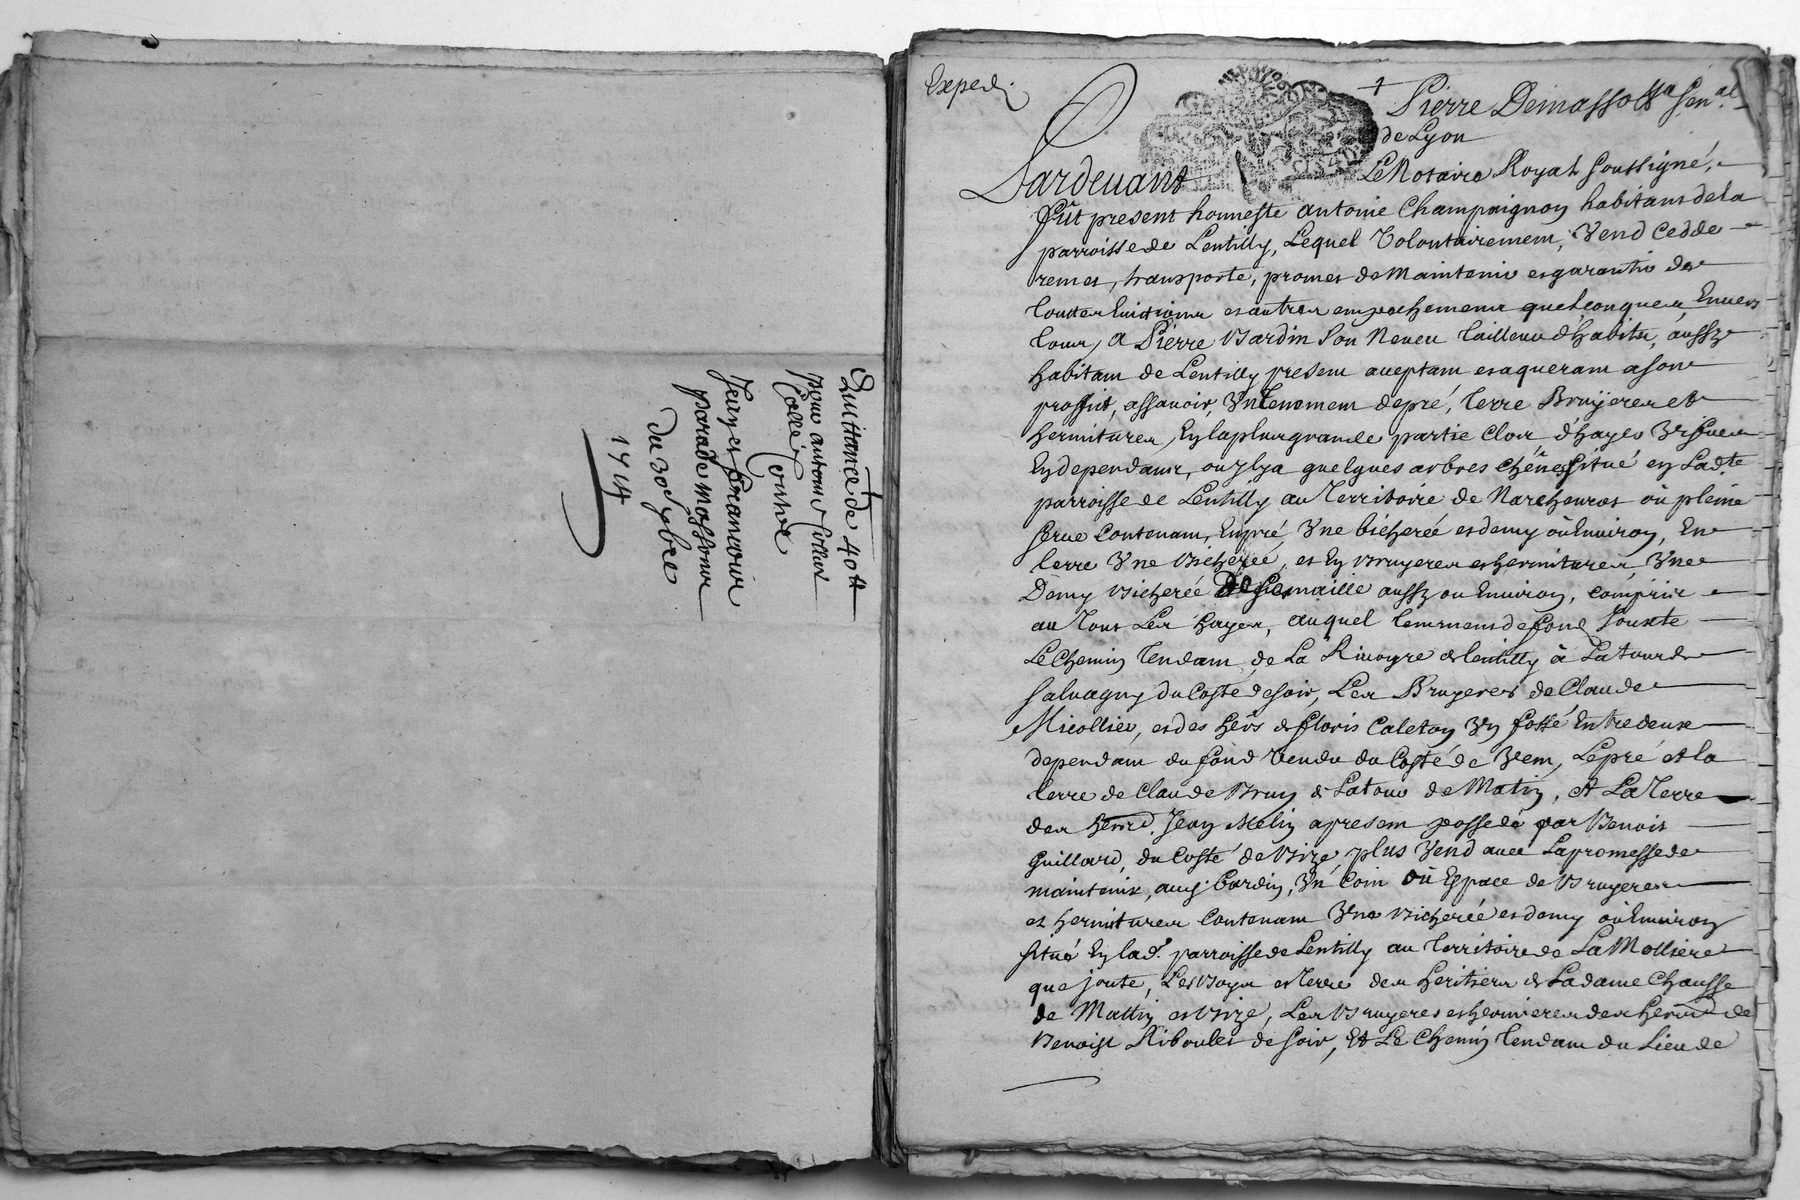 Quittance de 40tt
pour antoine
Contre
Jean et francois
du 30
1714
Exped.
Pierre Demasso Sen.al
de Lyon
Pardeuant Le Notaire Royal soussigné,
fût present honneste antoine Champaignon habitant de la
parroisse de Lentilly, Lequel volontairement, Vend cedde
remet, transporte, promet de maintenir et garantir de
touttes Euictions et autres empechemens quelconques, Enuers
tous, a Pierre Bardin son Neueu tailleur d'habits, aussy
habitant de Lentilly present acceptant et aquerant a son
proffit, assauoir, Vn tenement de pré, terre Bruÿeres et
hermitures, En la plus grande partie Clos d'hayes
En dependant, ou Il y a quelques arbres chênes situé en Lad.te
parroisse de Lentilly au Territoire de où pleine
serue contenant, En pré Vne bicherée et demy où Enuiron, En
terre Vne bicherée, et En bruyeres et hermitures, Vne
Demy bicherée De semaille aussy ou Enuiron, compris
au tout Les hayes, auquel tennement de fond Jouxte
Le Chemin tendant de La Riuoyre de lentilly à La tour de
saluagny du Costé de soir, Les Bruyeres de Claude
Micollier, et des hérs de floris Caleton Vn fossé Entredeux
dependant du fond Vendu du Costé de Vent, Le pré et la
terre de Claude Brun de Latour de Matin, et La Terre
des Jean Melin a present possedé par Benoit
Guillard, du Costé de bize, plus Vend auec La promesse de
maintenir, aud. bardin, Vn Coin où Espace de bruyeres
et hermitures Contenant Vne bicherée et demy où Enuiron
situé En lad. parroisse de Lentilly au territoire de La Molliere
que joute, Les Boys et terre des heritiers de La dame Chausse
de Mattin et bize, Les bruyeres et des de
Benoist Riboulet de soir, Et Le Chemin tendant du Lieu de